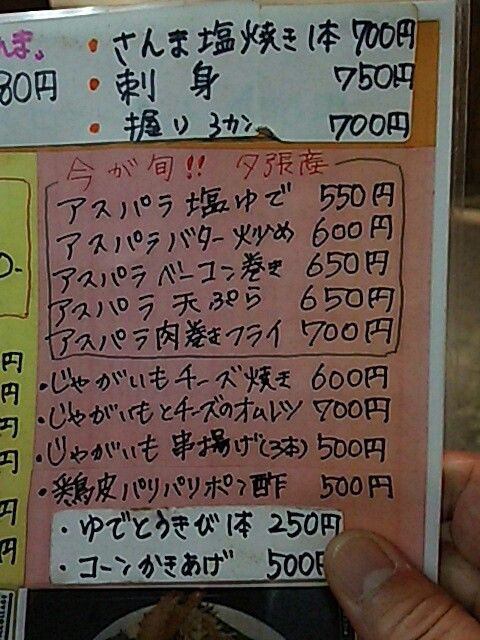 んま。
・さんま塩焼き1本 700円
80円
・刺身 750円
・握り3カン 700円
今が旬!! 夕張産
アスパラ塩ゆで 550円
アスパラバター炒め 600円
アスパラベーコン巻き 650円
アスパラ天ぷら 650円
アスパラ肉巻きフライ 700円
・じゃがいもチーズ焼き 600円
・じゃがいもとチーズのオムレツ 700円
・じゃがいも串揚げ(3本) 500円
・鶏皮パリパリポン酢 500円
・ゆでとうきび1本 250円
・コーンかきあげ 500円